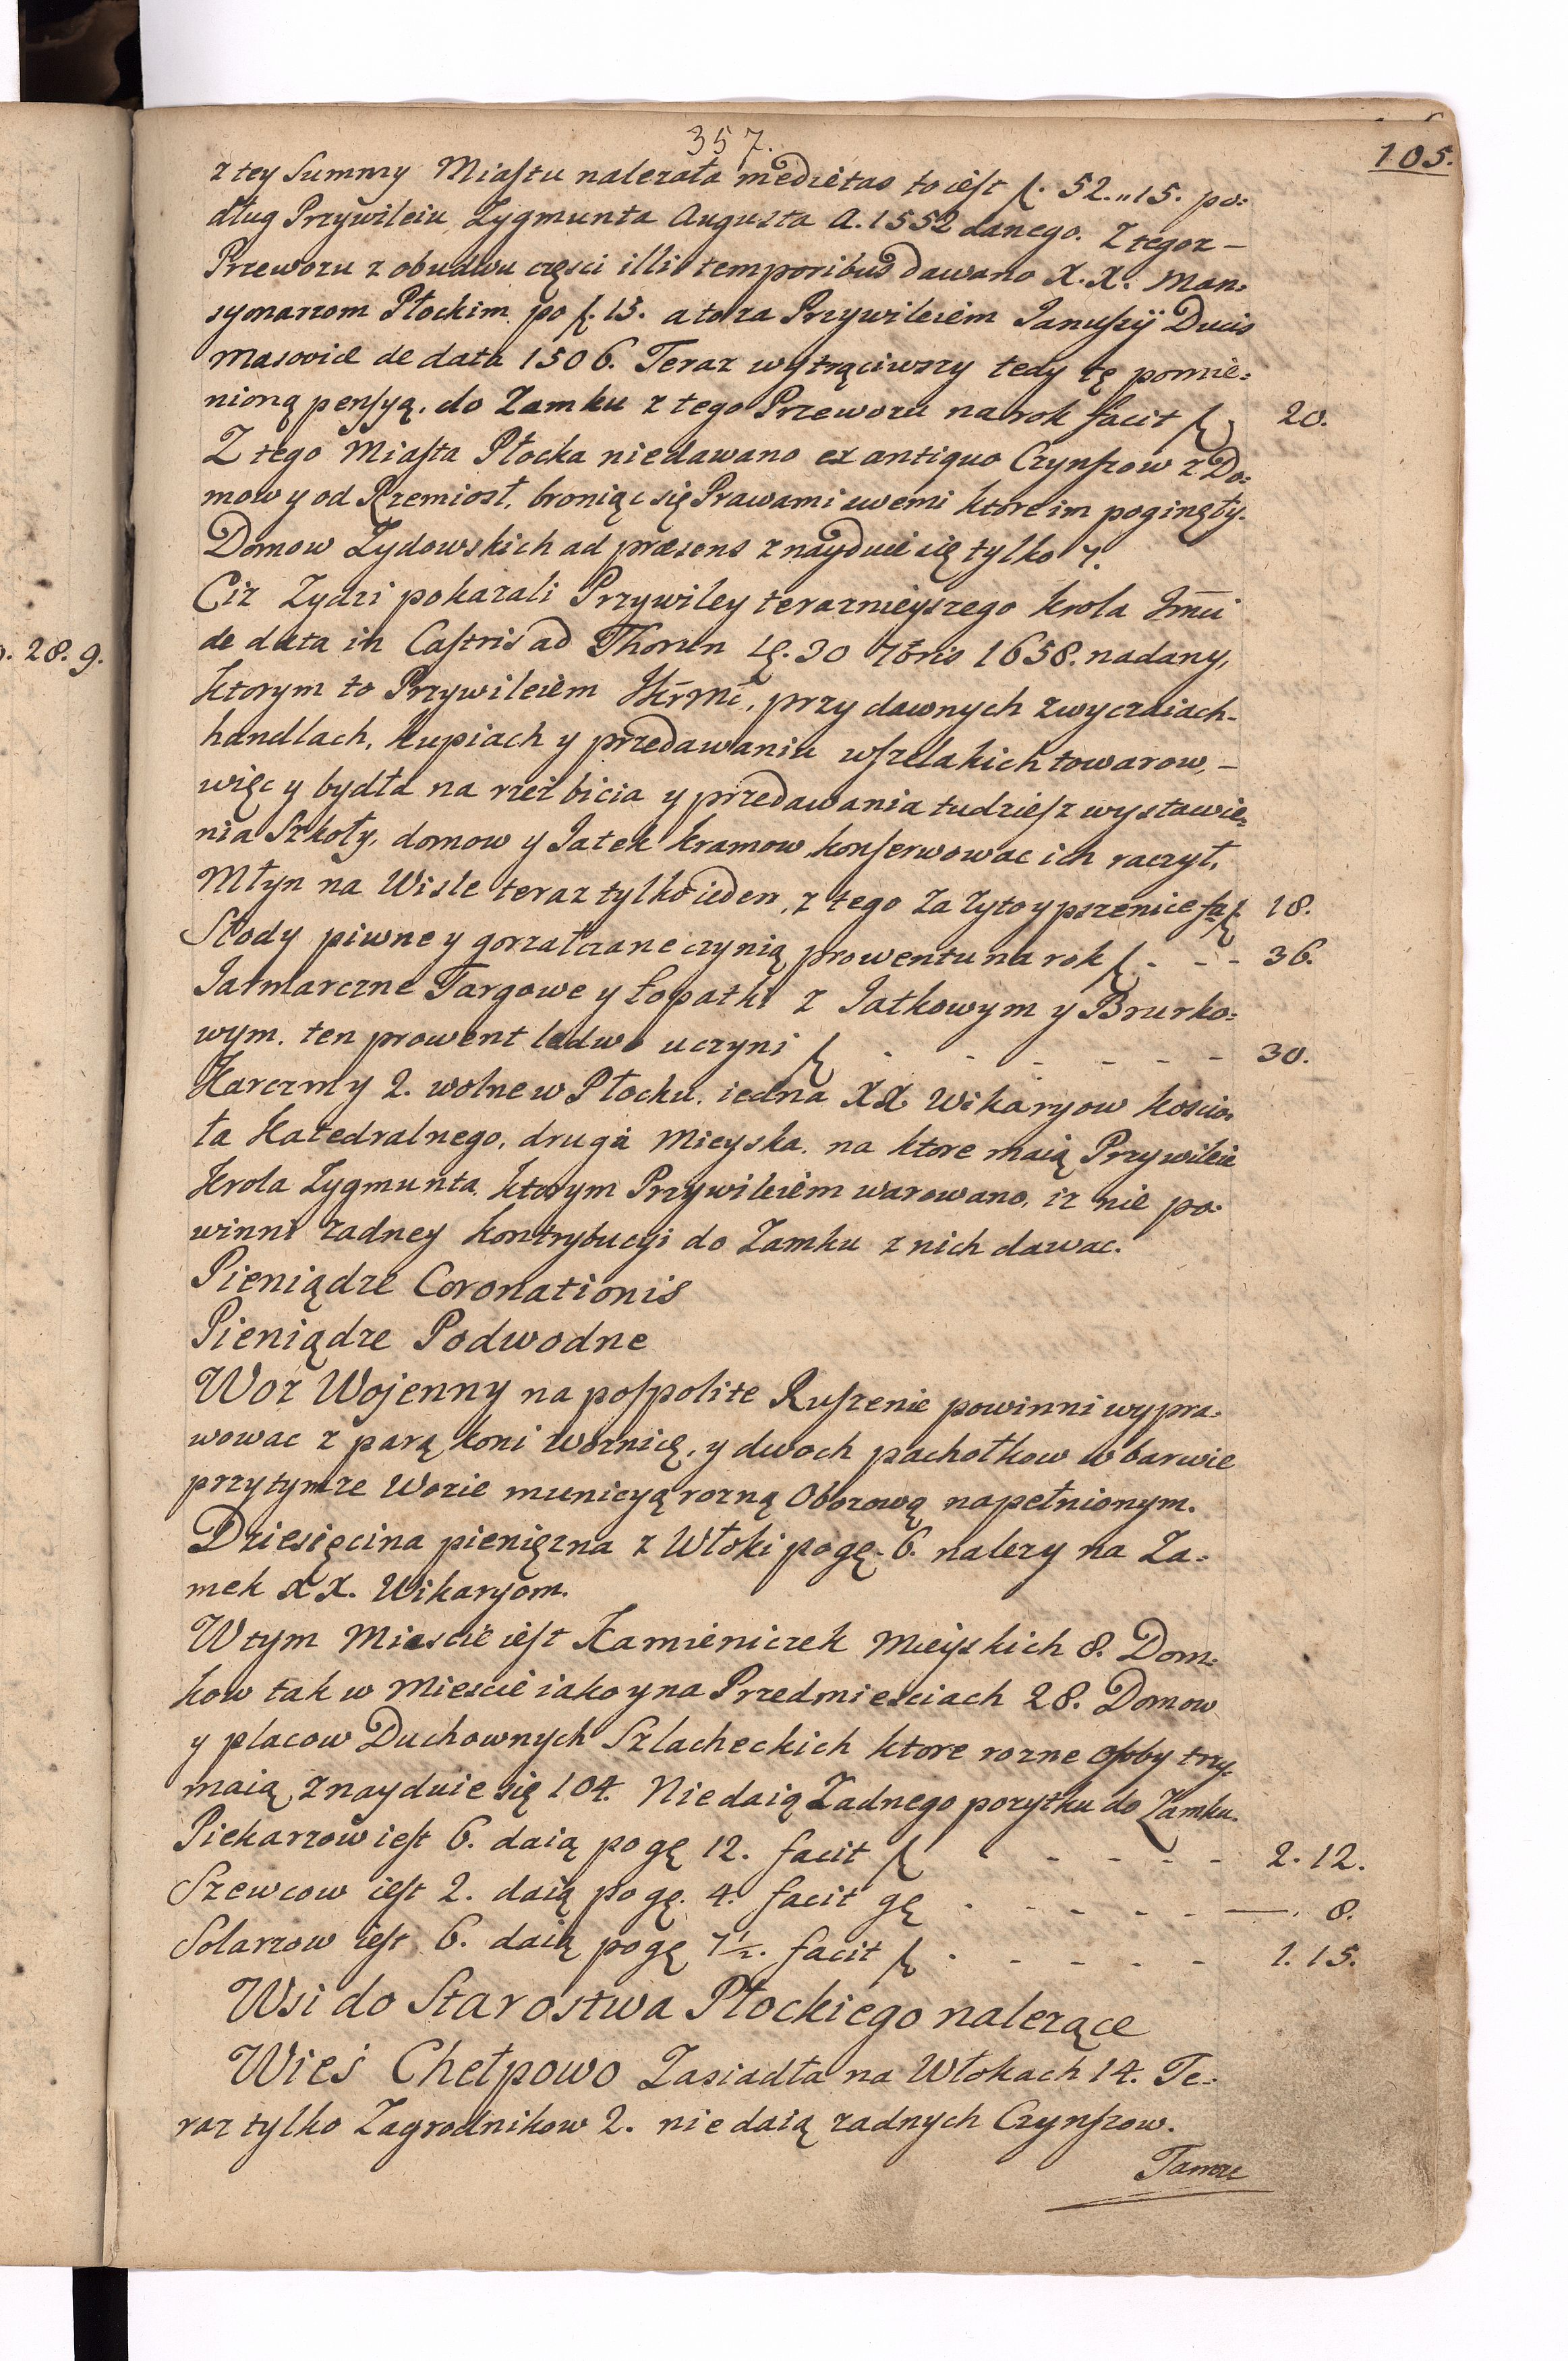 357.
105.
z tey Summy Miastu nalezała medietas to iest f. 52.„15. po=
dług Przywileiu Zygmunta Augusta A. 1552 danego. Z tegoz –
Przewozu z obudwu części illis temporibus dawano X.X. Man=
syonarzom Płockim po f. 15. a to za Przywileiem Janussÿ Ducis
Masoviæ de data 1506. Teraz wytrąciwszy tedy tę pomie=
nioną pensyą, do Zamku z tego Przewozu na rok facit f 20.
Z tego Miasta Płocka niedawano ex antiquo Czynszow z Do=
mow y od Rzemiosł, broniąc się Prawami swemi ktore im poginęły.
Domow Zydowskich ad præsens znayduie się tylko 7.
Ciz Zydzi pokazali Przywiley teraznieyszego Krola Jmci
de data in Castris ad Thorun 30 7bris 1658. nadany,
ktorym to Przywileiem JKrMć, przy dawnych zwyczaiach-
handlach, kupiach y przedawaniu wszelakich towarow, –
więc y bydła na rzez bicia y przedawania tudziesz wystawie=
nia Szkoły, domow y Jatek kramow konserwowac ich raczył.
Młyn na Wisle teraz tylko ieden, z tego za zyto y pszenice fa f. 18.
Słody piwne y gorzałczane czynią prowentu na rok f. - - - 36.
Jarmarczne Targowe y Łopatki z Jatkowym y Brurko=
wym, ten prowent ledwo uczyni f - - - - - - - 30.
Karczmy 2. wolne w Płocku, iedna XX Wikaryow koscio=
ła Katedralnego, druga Mieyska, na ktore maią Przywileie
Krola Zygmunta, ktorym Przywileiem warowano, iz nie po=
winni zadney kontrybucyi do Zamku z nich dawac.
Pieniądze Coronationis
Pieniądze Podwodne
Woz Wojenny na pospolite Ruszenie powinni wypra=
wowac z parą koni Woznicę, y dwoch pachołkow w barwie
przy tymze Wozie municyą rozną Obozową napełnionym.
Dziesięcina pieniężna z Włoki po gę. 6. nalezy na Za=
mek XX. Wikaryom.
W tym Miescie iest Kamieniczek Mieyskich 8. Dom=
kow tak w Miescie iako y na Przedmiesciach 28. Domow
y placow Duchownych Szlacheckich ktore rozne Osoby trzy=
maią znayduie się 104. Nie daią Zadnego pozytku do Zamku.
Piekarzow iest 6. daią po gę 12. facit f - - - - - 2. 12.
Szewcow iest 2. daią po gę. 4. facit gę - - - - - —. 8.
Solarzow iest 6. daią po gę 7½. facit f - - - - - 1. 15.
Wsi do Starostwa Płockiego nalezące
Wieś Chełpowo Zasiadła na Włokach 14. Te=
raz tylko Zagrodnikow 2. nie daią zadnych Czynszow.
Tamze
28. 9.